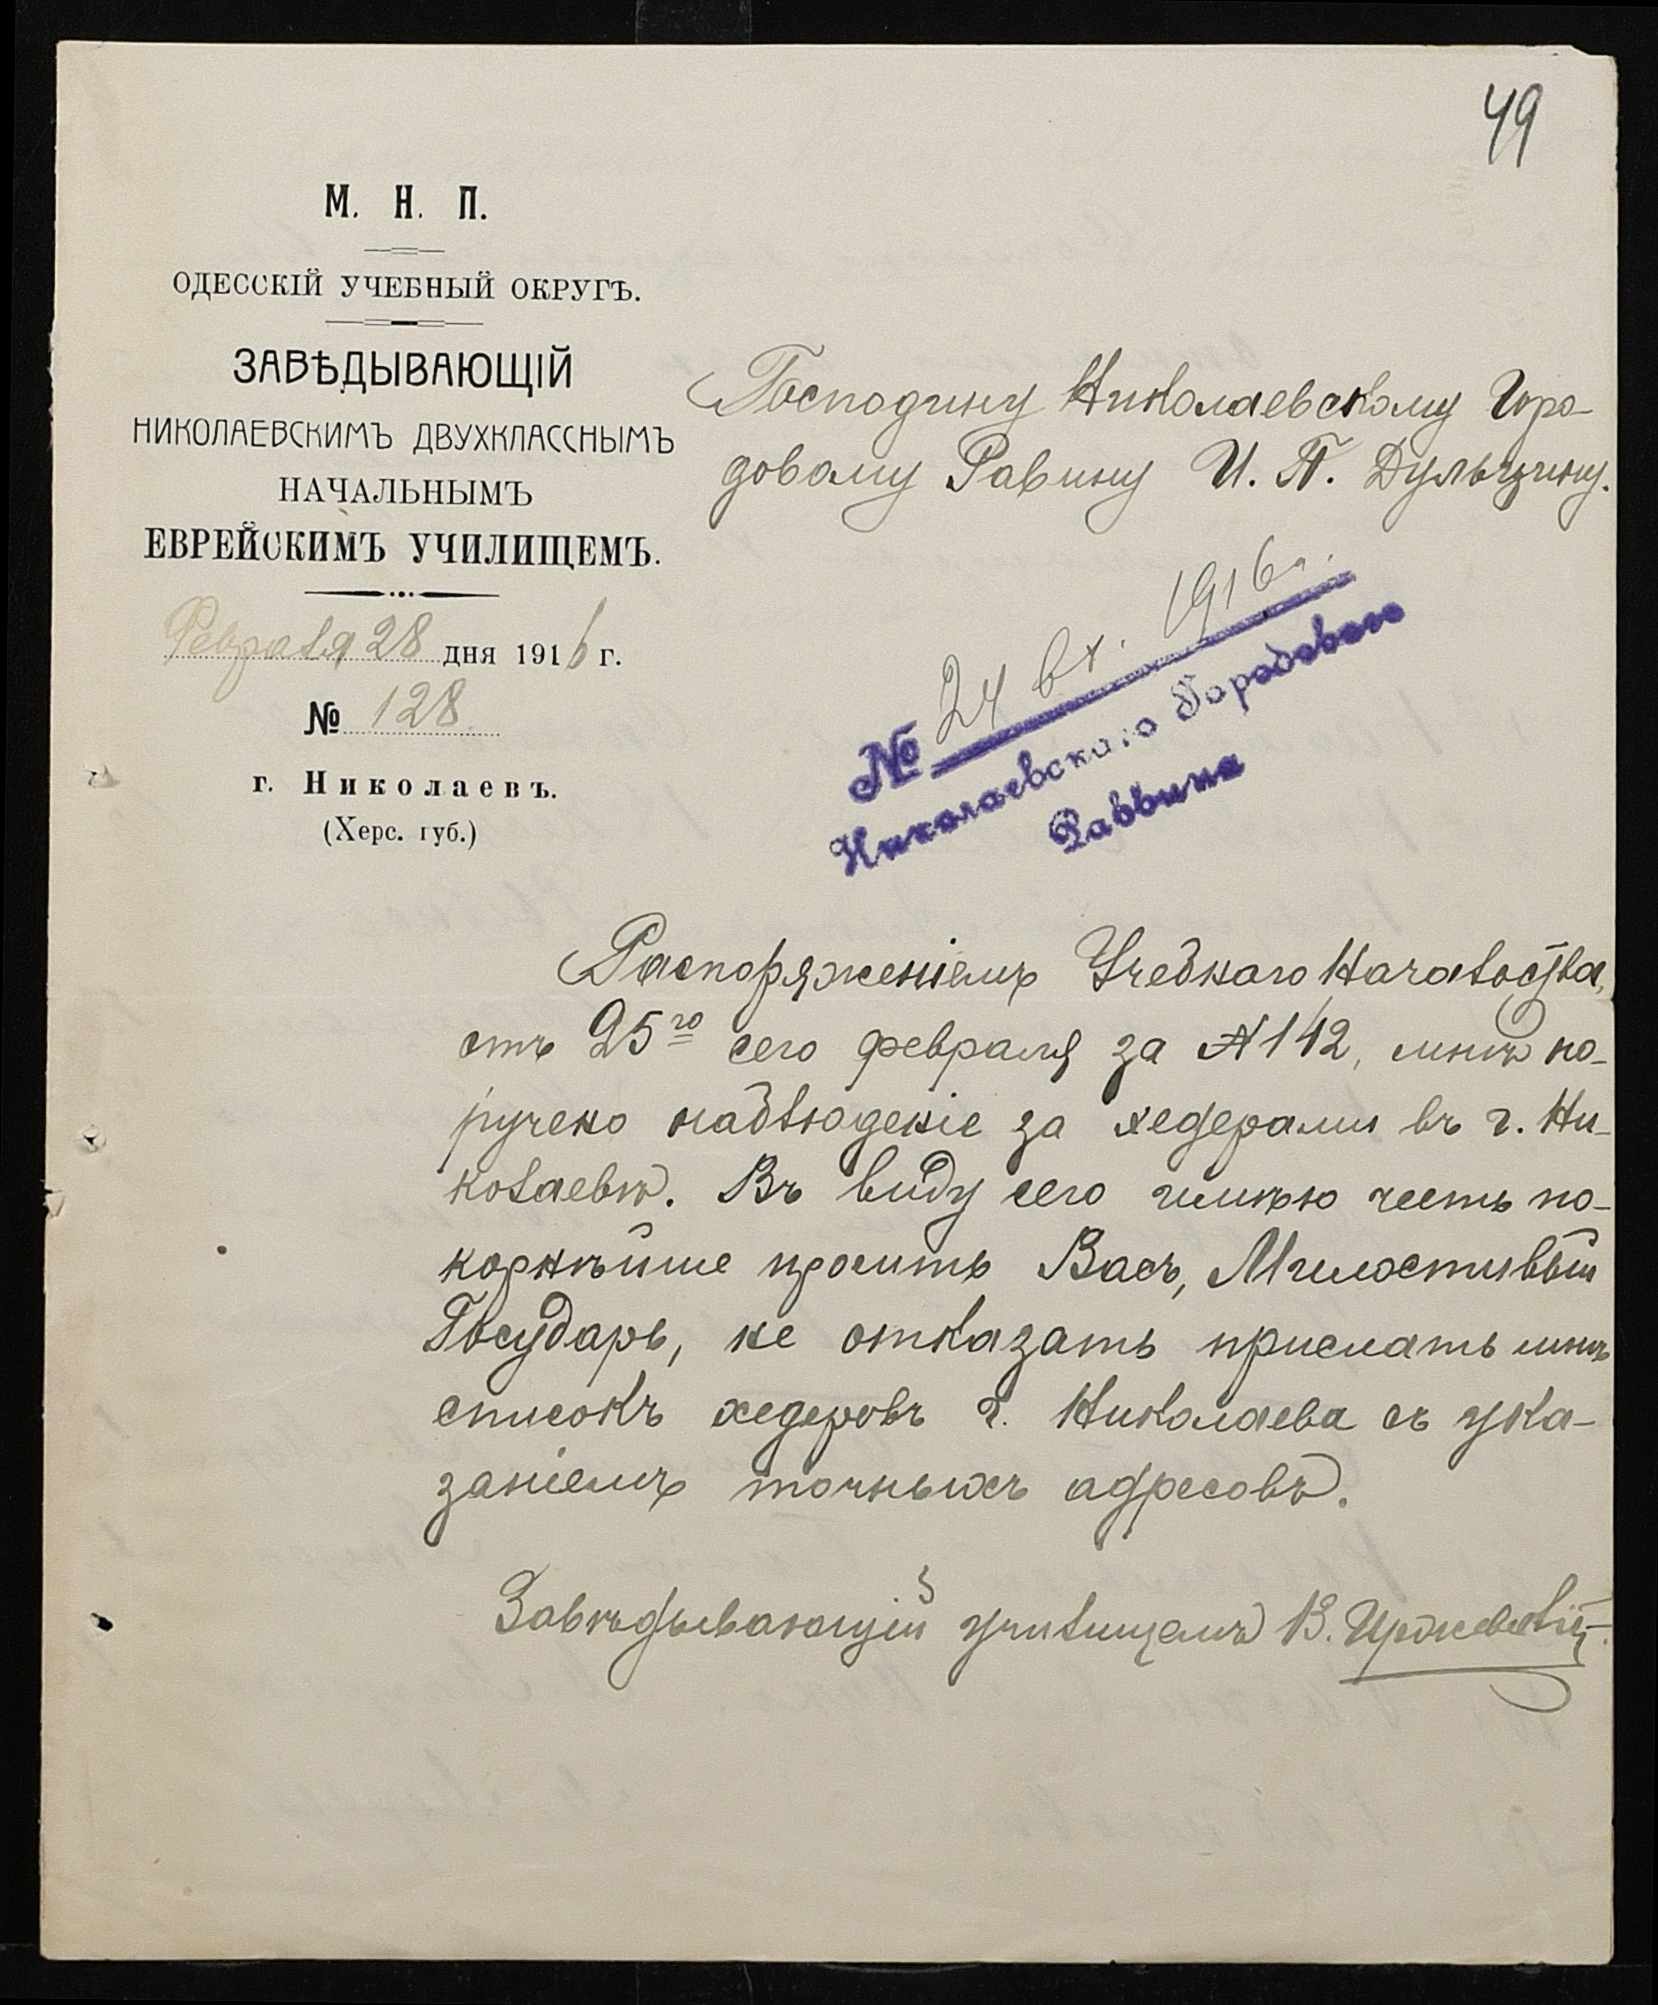 49
М. Н. П.
ОДЕССКІЙ УЧЕБНЫЙ ОКРУГЪ.
ЗАВѢДЫВАЮЩІЙ
НИКОЛАЕВСКИМЪ ДВУХКЛАССНЫМЪ
НАЧАЛЬНЫМЪ
ЕВРЕЙСКИМЪ УЧИЛИЩЕМЪ.
Февраля 28 дня 1916 г.
№ 128
г. Николаевъ.
(Херс. губ.)
Господину Николаевскому Горо-
довому Равину И. П. Дульчину.
№ 24 вх. 1916 г.
Николаевскаго Городового
Раввина
Распоряженіемъ Учебнаго Начальства,
отъ 25го сего февраля за № 142, мнѣ по-
ручено наблюденіе за хедерами въ г. Ни-
колаевѣ. Въ виду сего имѣю честь по-
корнѣйше просить Васъ, Милостивый
Государь, не отказать прислать мнѣ
списокъ хедеровъ г. Николаева съ ука-
заніемъ точныхъ адресовъ.
Завѣдывающій училищемъ В.